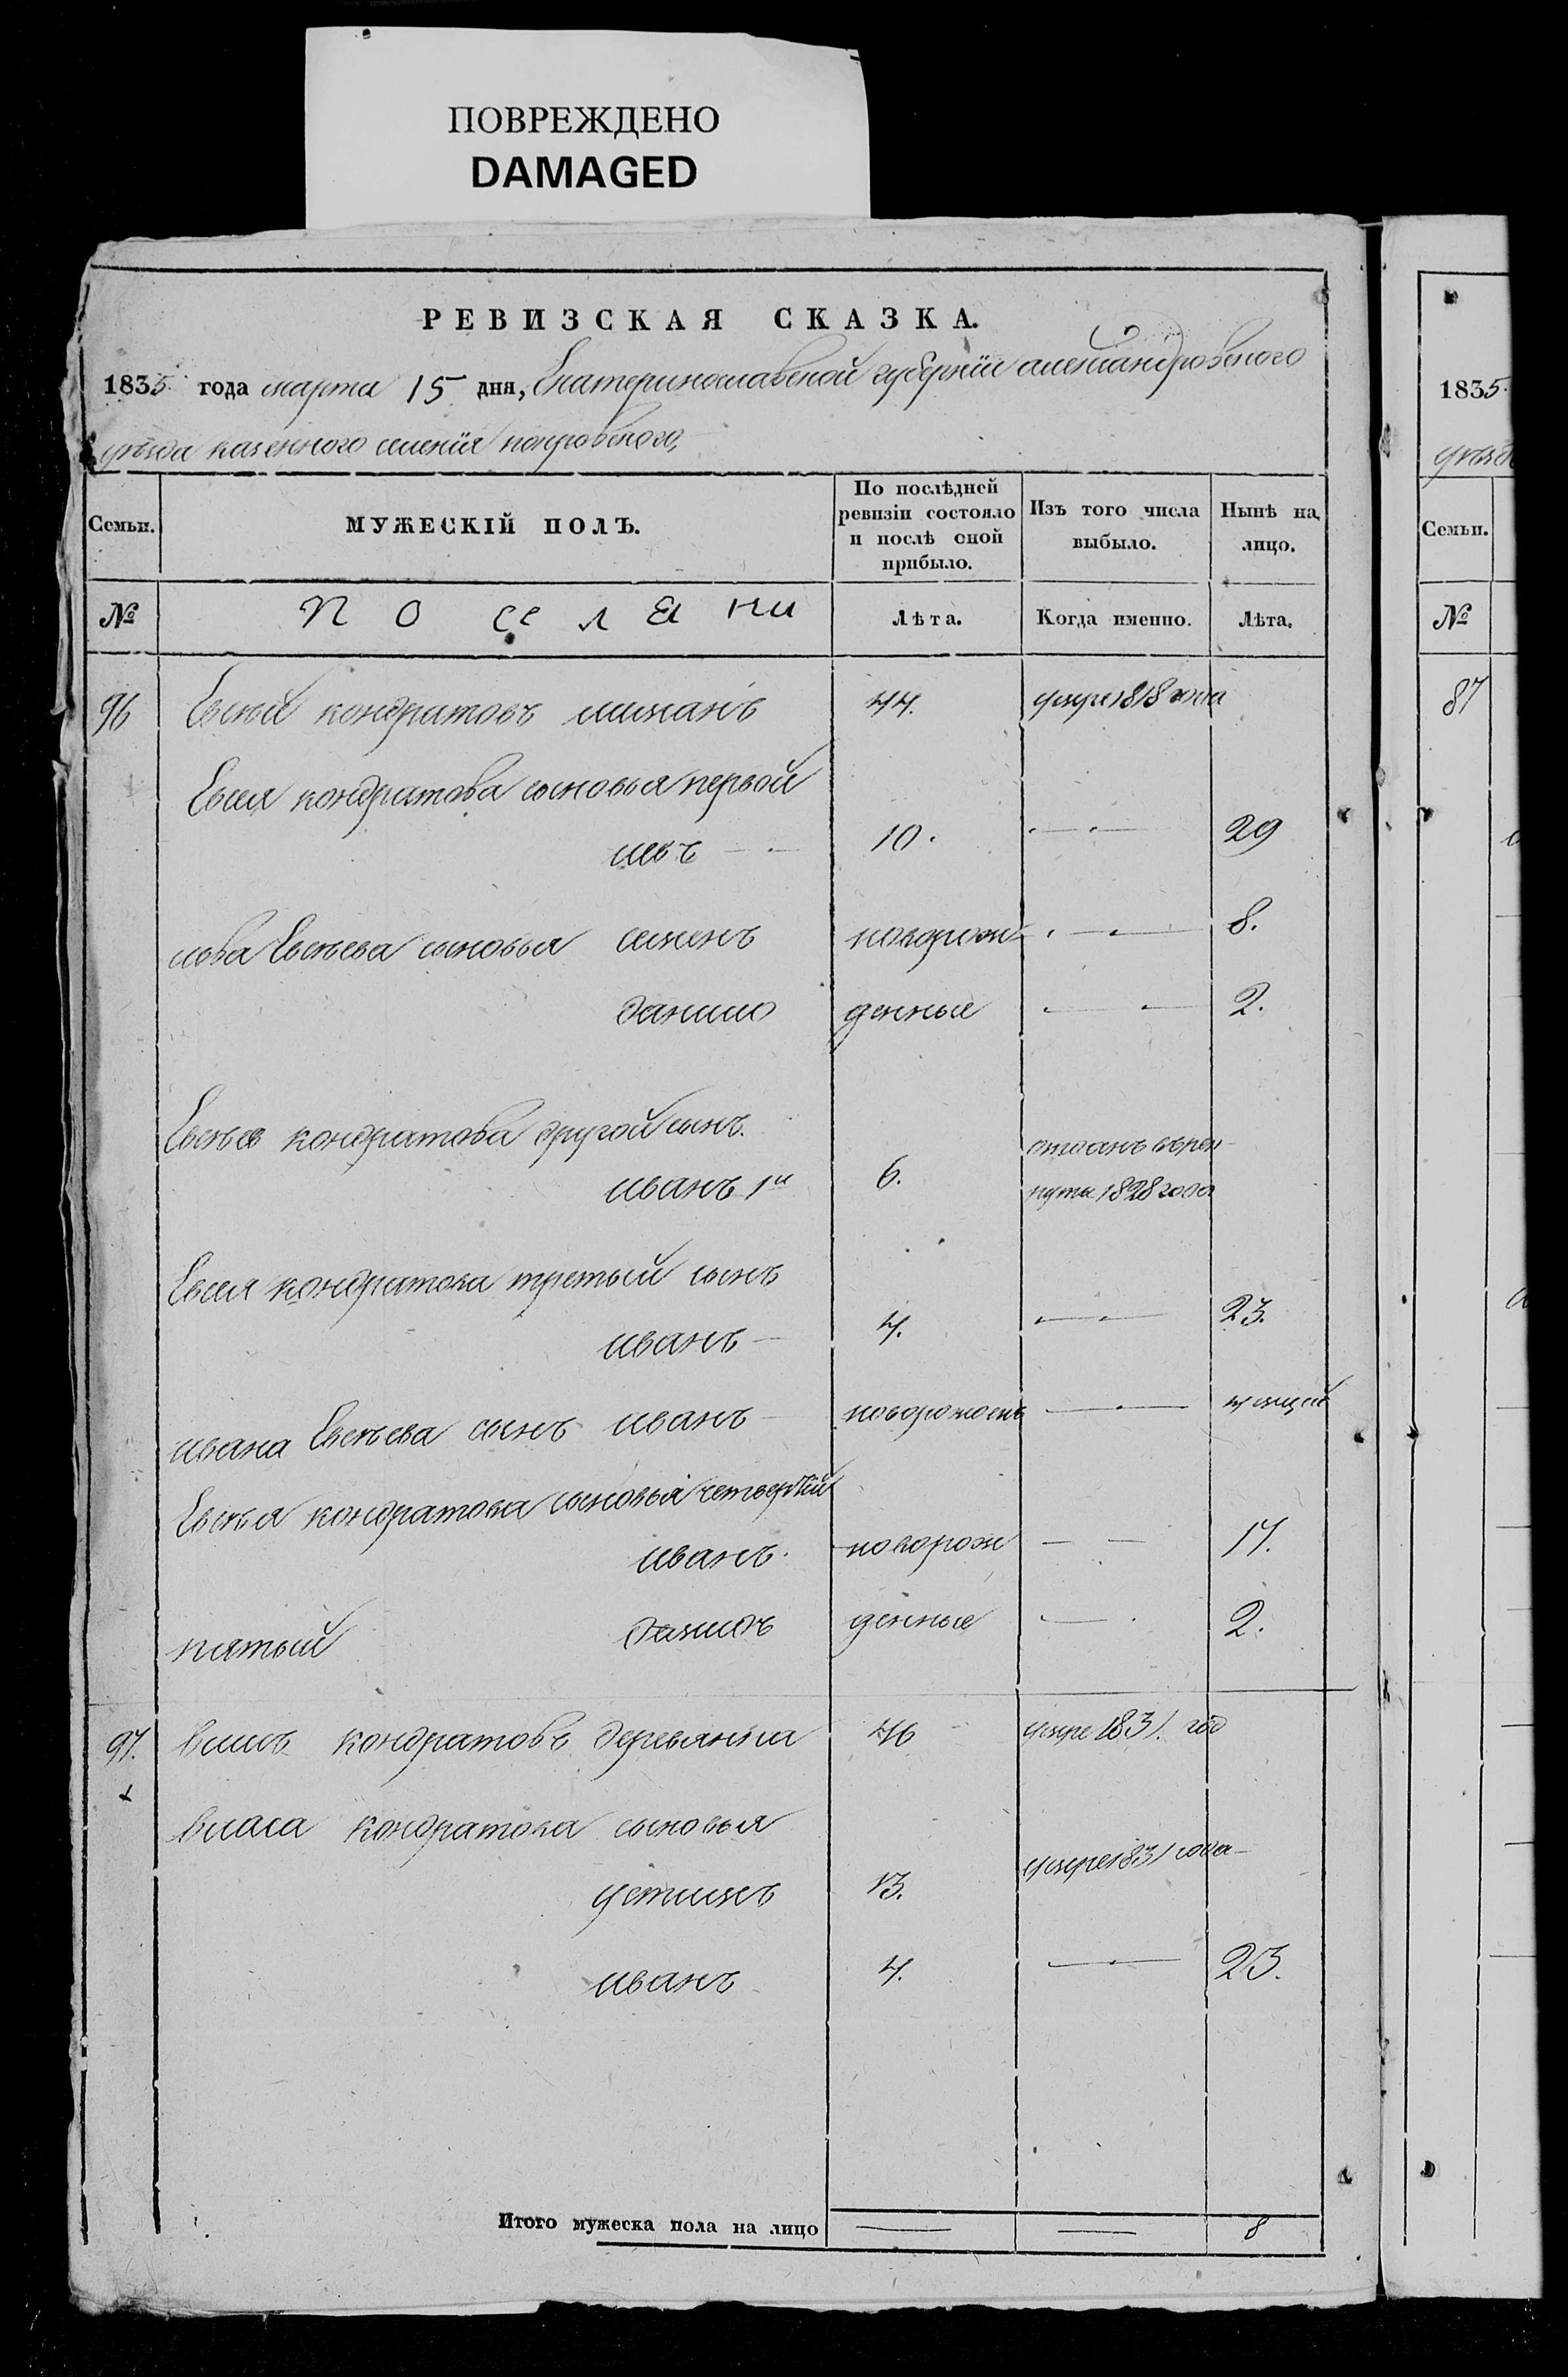 ПОВРЕЖДЕНО
DAMAGED
РЕВИЗСКАЯ СКАЗКА.
1835 года марта 15 дня, Екатеринославской губернiи александровского
уѣзда казенного селенiя покровского,
Семьи.
МУЖЕСКIЙ ПОЛЪ.
По послѣдней ревизiи состояло и послѣ оной прибыло.
Изъ того числа выбыло.
Нынѣ на лицо.
№
поселяни
Лѣта.
Когда именно.
Лѣта.
96 Евсѣй кондратовъ 44. умре 1818 года
Евсея кондратова сыновья первой
левъ 10. 29
лева Евсѣева сыновья семенъ новорож 8.
данило денные 2.
Евсѣя кондратова другой сынъ
иванъ 1й 6. отданъ врек
руты 1828 года
Евсея кондратова третьий сынъ
иванъ 4. 23.
ивана Евсѣева сынъ иванъ новорожденъ
Евсѣя кондратова сыновья четвертый
иванъ новорож 17.
пятый денные 2.
97. власъ кондратовъ 46 умре 1831. год
власа кондратова сыновья
устимъ 13. умре 1831 года
иванъ 4. 23.
Итого мужеска пола на лицо 8
1835
уѣзда
Семьи.
№
87